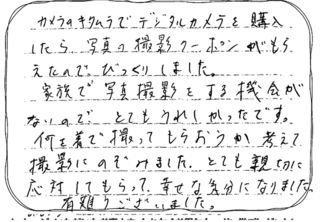 カメラのキタムラでデジタルカメラを購入
したら写真の撮影クーポンがもら
えたのでびっくりしました。
家族で写真撮影をする機会が
ないので とてもうれしかったです。
何を着て撮ってもらおうか 考えて
撮影にのぞみました. とても親切に
応対してもらって 幸せな気分になりました.
有難うございました。